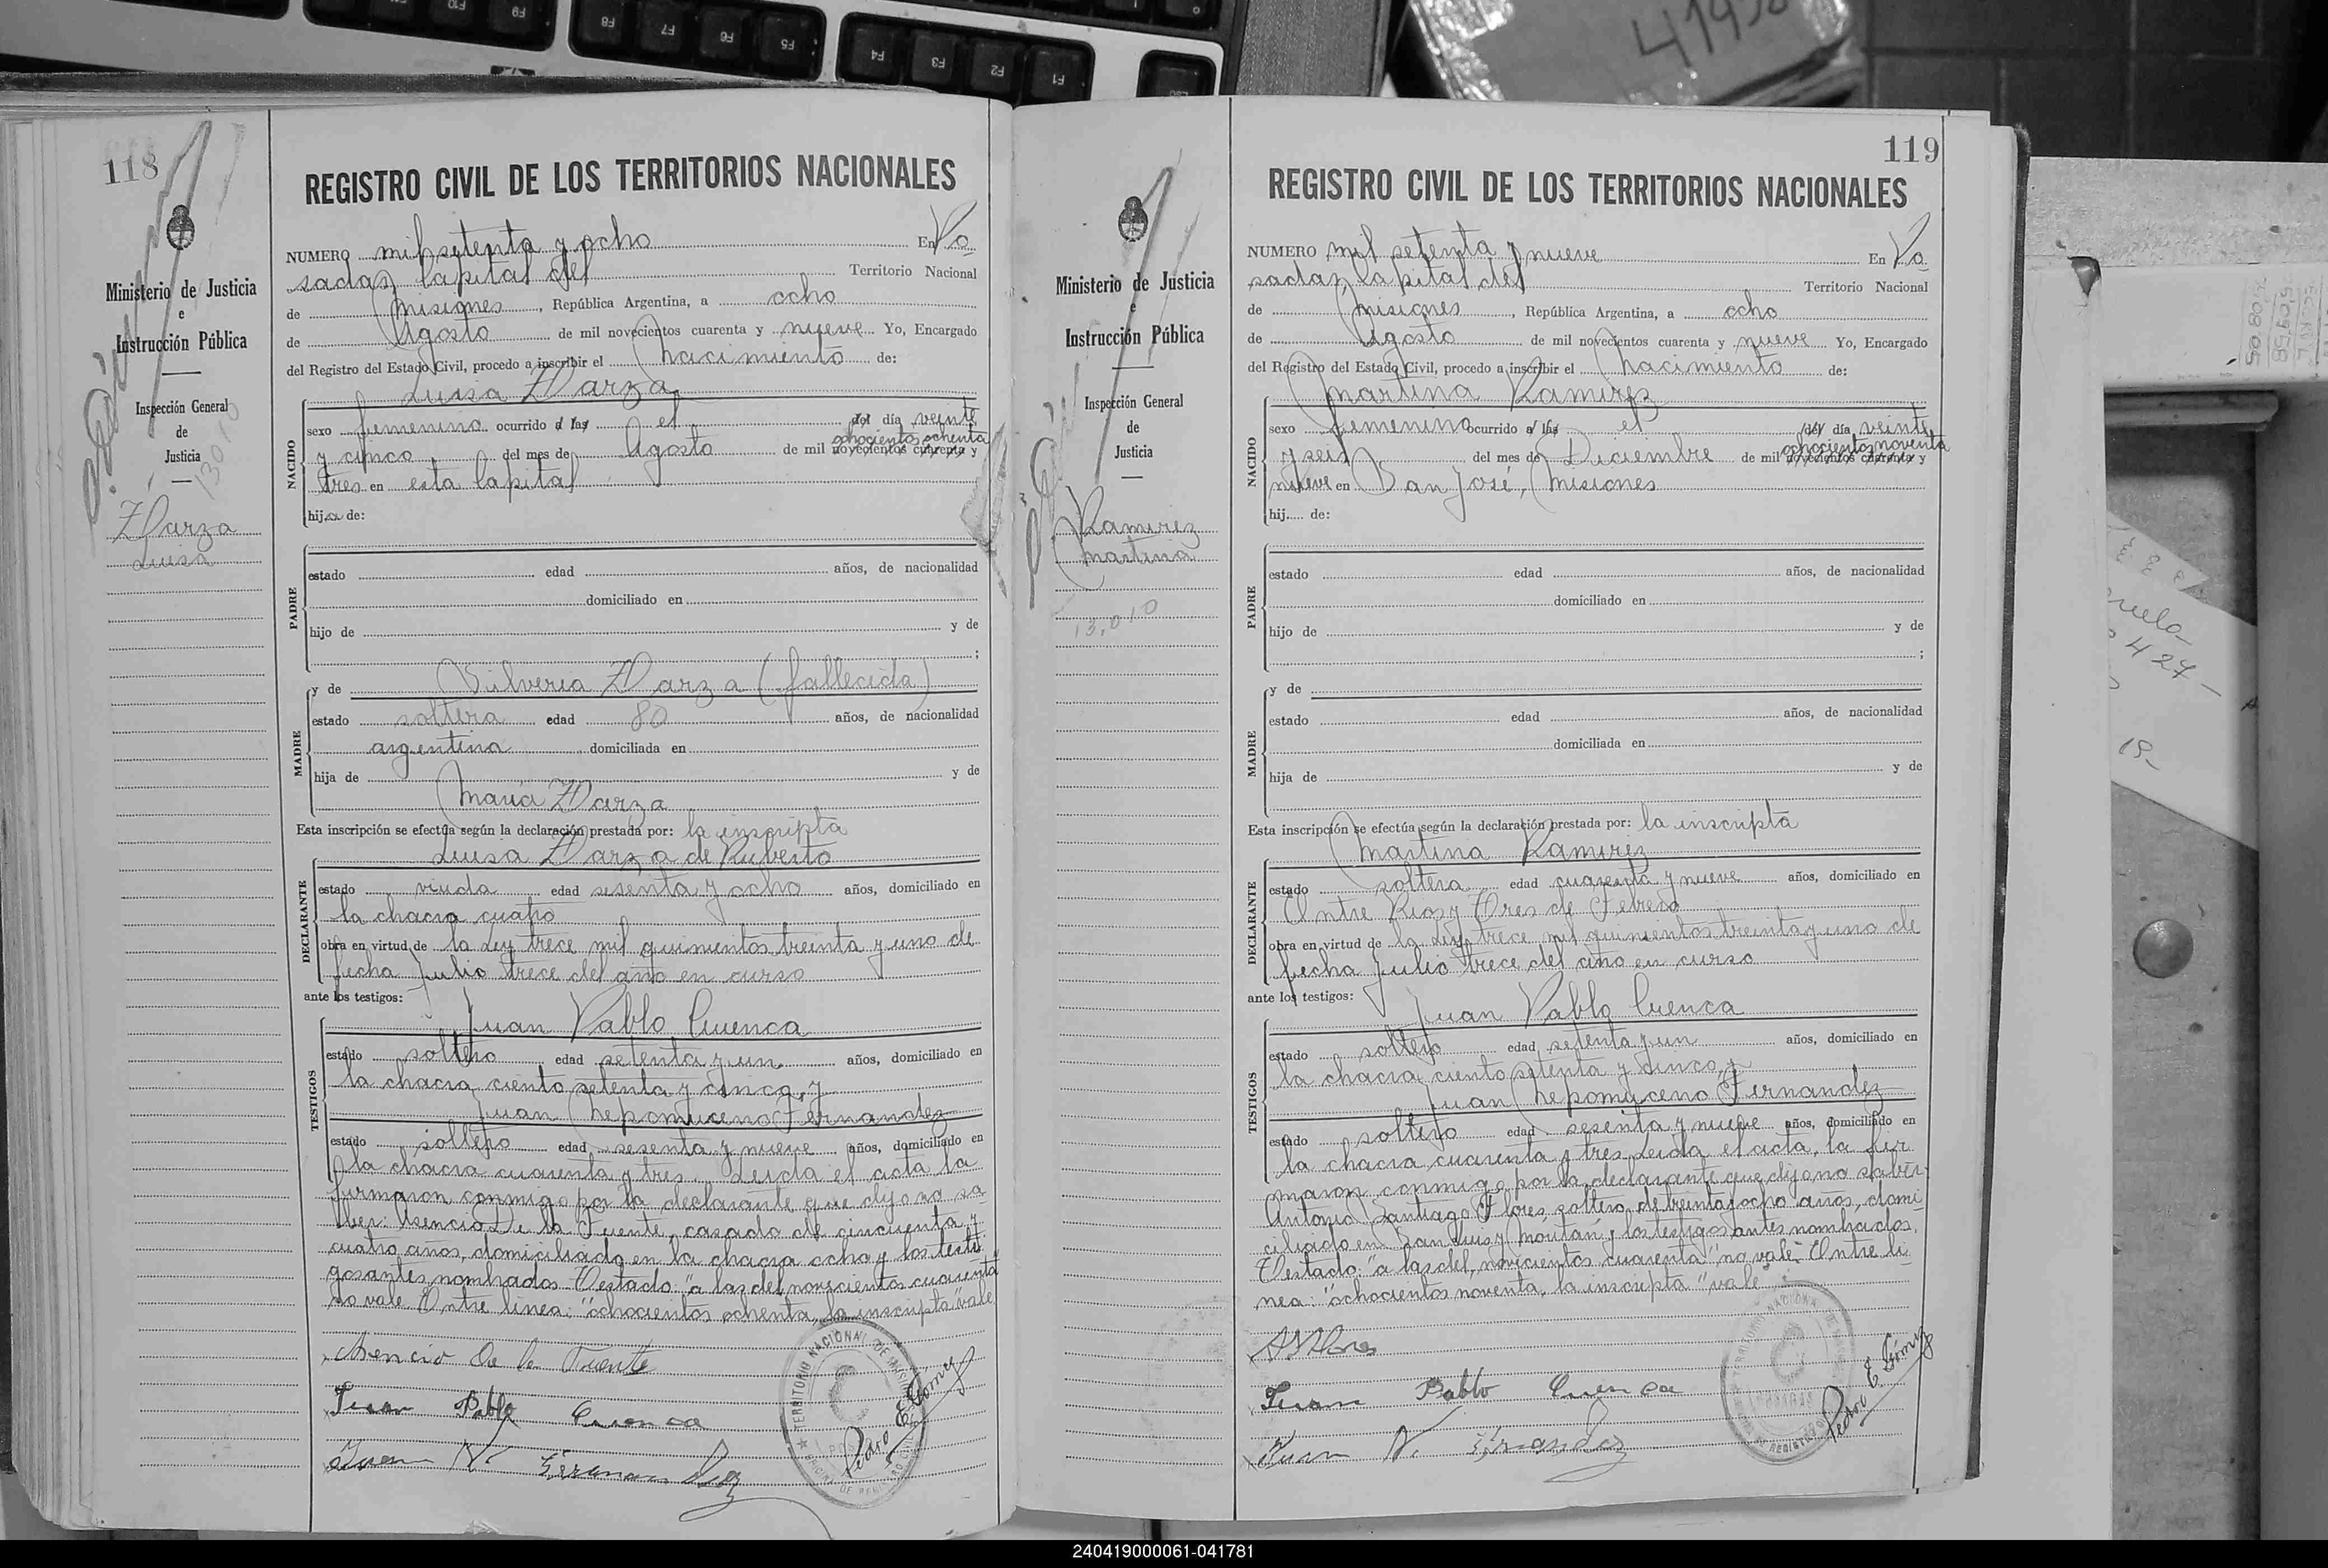 118
REGISTRO CIVIL DE LOS TERRITORIOS NACIONALES
Ministerio de Justicia
e
Instrucción Pública
Inspección General
de
Justicia
13010
Luisa
NUMERO mil setenta y ocho En Po
sadas, Capital del Territorio Nacional
de Misiones, República Argentina, a ocho
de Agosto de mil novecientos cuarenta y nueve Yo, Encargado
del Registro del Estado Civil, procedo a inscribir el nacimiento de:
Luisa
NACIDO
sexo femenino ocurrido a las el del día veinte
ochocientos ochenta
y cinco del mes de Agosto de mil novecientos cuarenta y
tres en esta Capital
hija de:
PADRE
estado edad años, de nacionalidad
domiciliado en
hijo de y de
;
y de Silveria (fallecida)
MADRE
estado soltera edad 80 años, de nacionalidad
argentina domiciliada en
hija de y de
Maria
Esta inscripción se efectúa según la declaración prestada por: la inscripta
Luisa de Ruberto
DECLARANTE
estado viuda edad sesenta y ocho años, domiciliado en
la chacra cuatro
obra en virtud de la Ley trece mil quinientos treinta y uno de
fecha Julio trece del año en curso
ante los testigos:
Juan Pablo Cuenca
TESTIGOS
estado soltero edad setenta y un años, domiciliado en
la chacra ciento setenta y cinco, y
Juan Nepomuceno Fernandez
estado soltero edad sesenta y nueve años, domiciliado en
la chacra cuarenta y tres. Leida el acta la
firmaron conmigo por la declarante que dijo no sa
ber: Asencio De la Fuente, casado de cincuenta y
cuatro años, domiciliado en la chacra ocho y los testi
gos antes nombrados. Testado: "a las del, novecientos cuarenta"
no vale. Entre linea: "ochocientos ochenta, la inscripta" vale
Asencio De la Fuente
Juan Pablo Cuenca
Juan N. Fernandez
TERRITORIO NACIONAL DE MISIONES
Pedro E. Gómez
119
REGISTRO CIVIL DE LOS TERRITORIOS NACIONALES
Ministerio de Justicia
e
Instrucción Pública
Inspección General
de
Justicia
Ramirez
Martina
13.010
NUMERO mil setenta y nueve En Po
sadas, Capital del Territorio Nacional
de Misiones, República Argentina, a ocho
de Agosto de mil novecientos cuarenta y nueve Yo, Encargado
del Registro del Estado Civil, procedo a inscribir el nacimiento de:
Martina Ramirez
NACIDO
sexo femenino ocurrido a las el del día veinte
ochocientos noventa
y seis del mes de Diciembre de mil novecientos cuarenta y
nueve en San José, Misiones
hij de:
PADRE
estado edad años, de nacionalidad
domiciliado en
hijo de y de
;
y de
MADRE
estado edad años, de nacionalidad
domiciliada en
hija de y de
Esta inscripción se efectúa según la declaración prestada por: la inscripta
Martina Ramirez
DECLARANTE
estado soltera edad cuarenta y nueve años, domiciliado en
Entre Rios y Tres de Febrero
obra en virtud de la Ley trece mil quinientos treinta y uno de
fecha Julio trece del año en curso
ante los testigos:
Juan Pablo Cuenca
TESTIGOS
estado soltero edad setenta y un años, domiciliado en
la chacra ciento setenta y cinco, y
Juan Nepomuceno Fernandez
estado soltero edad sesenta y nueve años, domiciliado en
la chacra cuarenta y tres. Leida el acta, la fir
maron conmigo por la declarante que dijo no saber:
Antonio Santiago Flores, soltero, de treinta y ocho años, domi
ciliado en San Luis y Moutan, y los testigos antes nombrados.
Testado: "a las del, novecientos cuarenta" no vale. Entre li
nea: "ochocientos noventa, la inscripta" vale
A S Flores
Juan Pablo Cuenca
Juan N. Fernandez
Pedro E Gómez
240419000061-041781